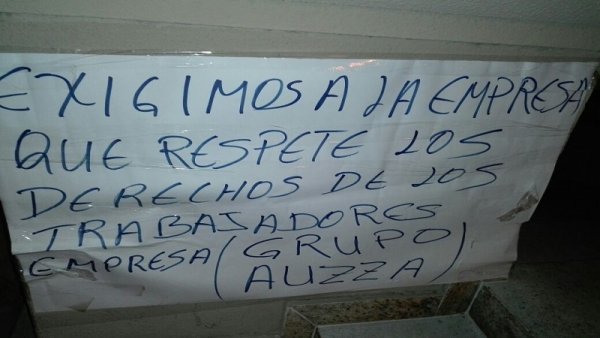 EXIGIMOS A LA EMPRESA
QUE RESPETE LOS
DERECHOS DE LOS
TRABAJADORES
EMPRESA (GRUPO
AUZZA)